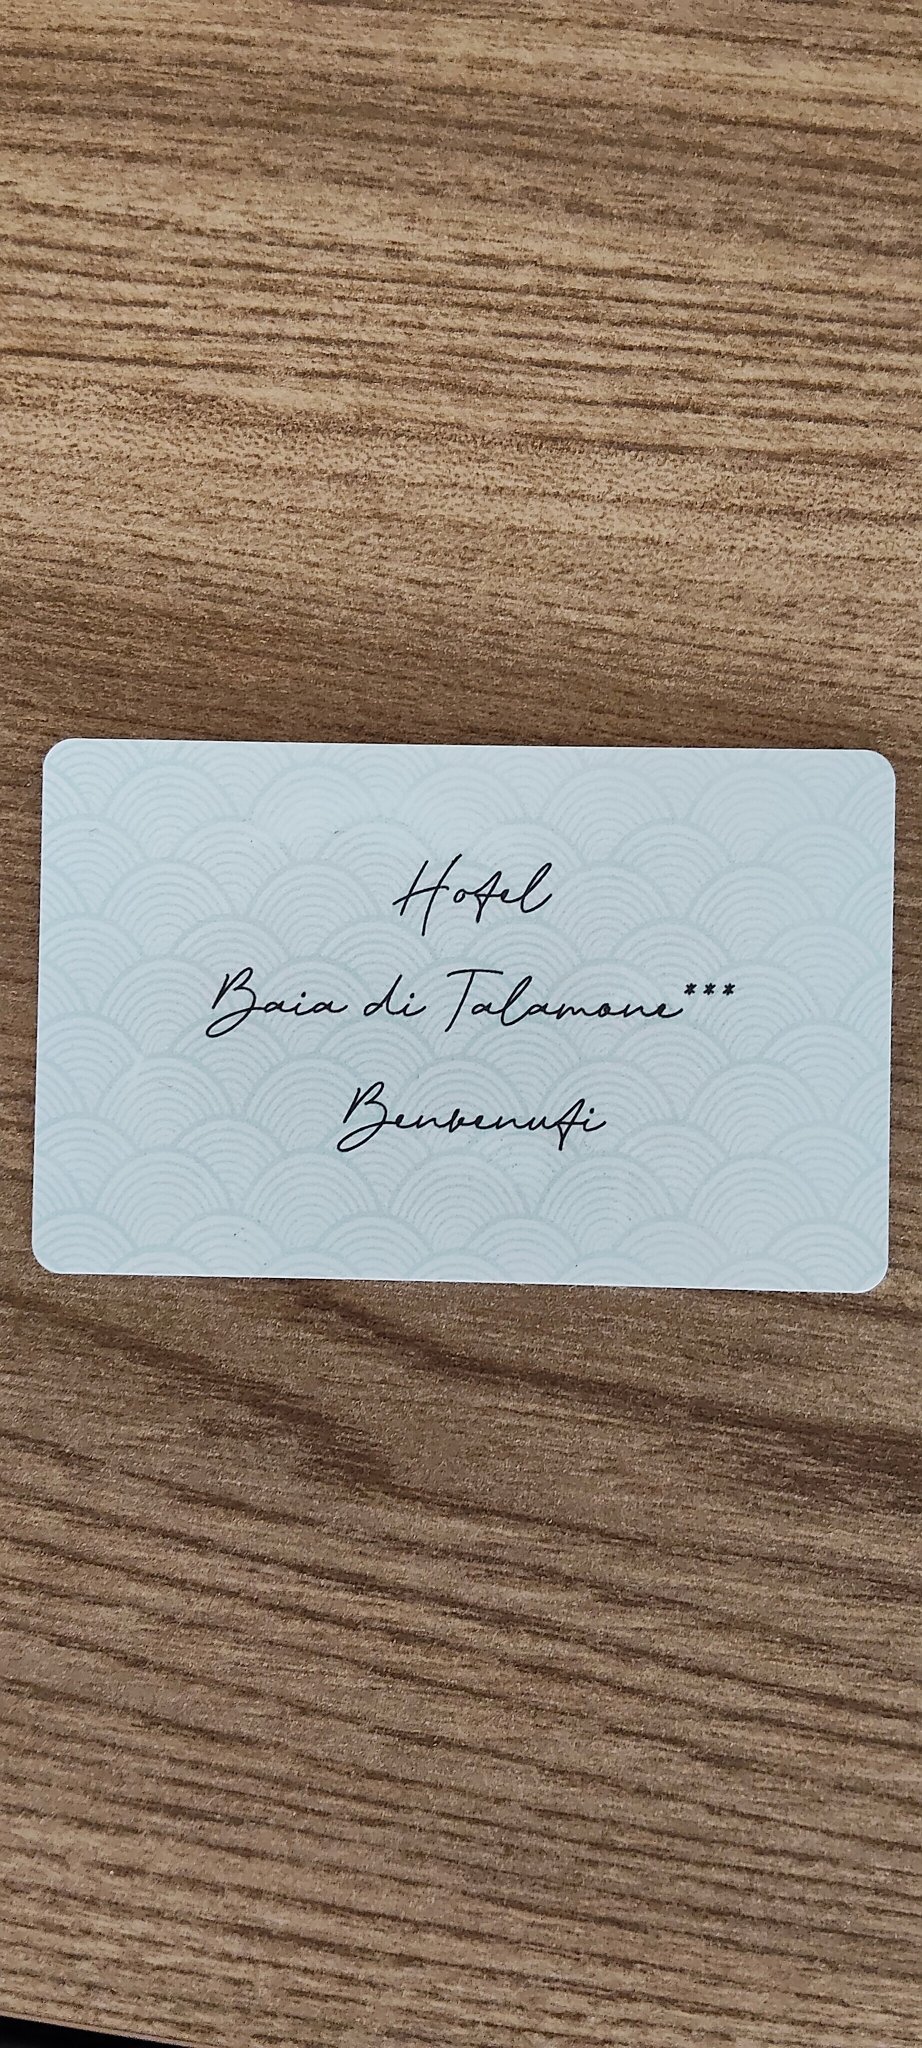 Hotel
Baia di Talamone***
Benvenuti